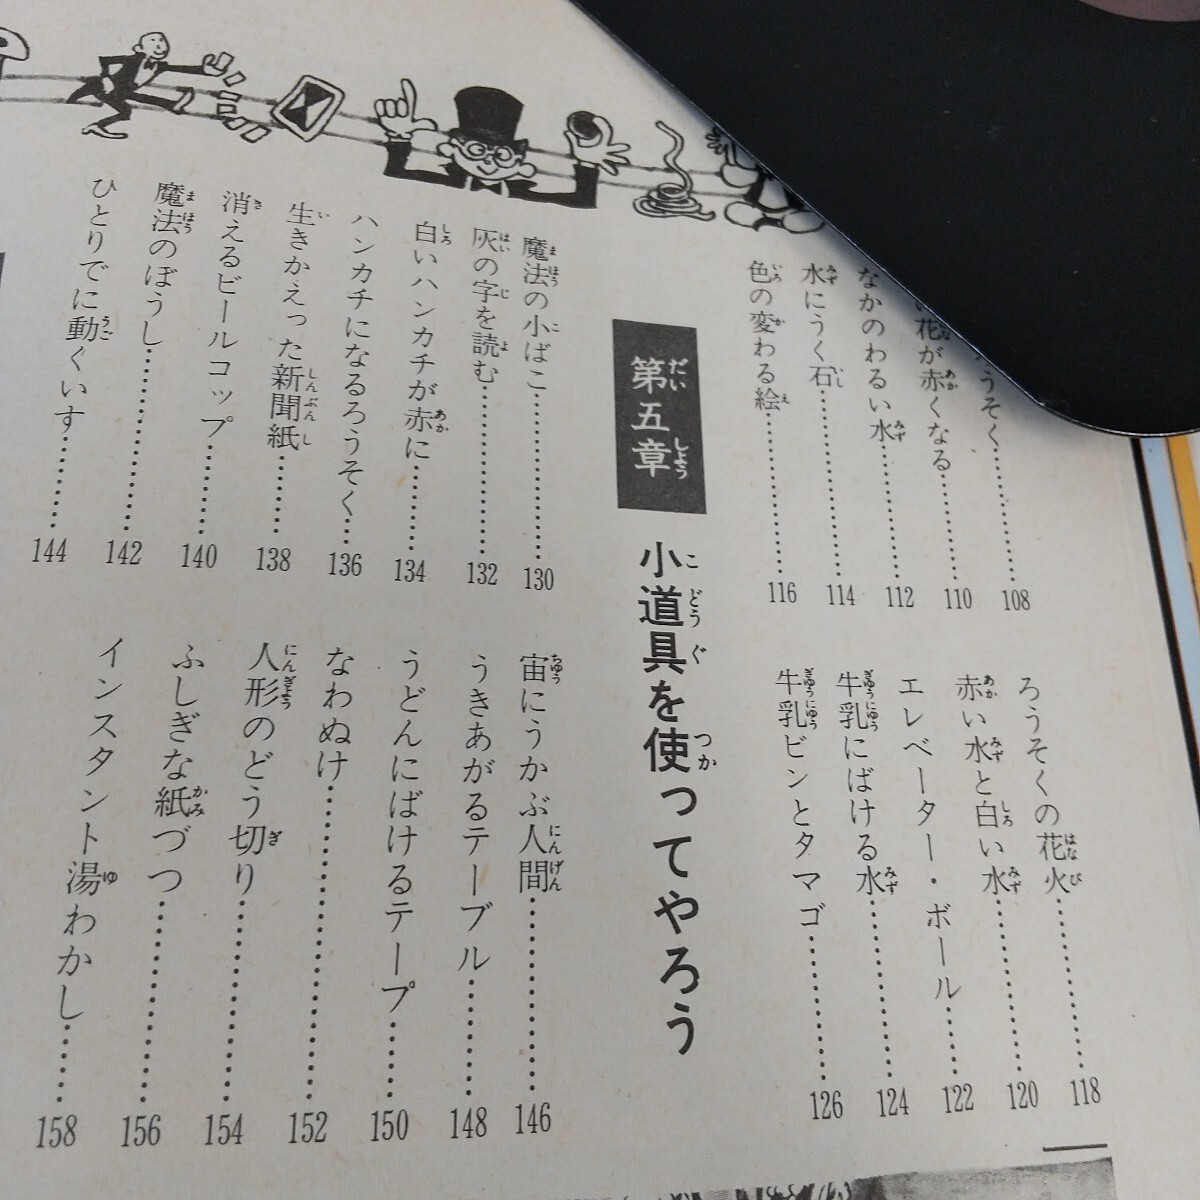 うそく……………108
花が赤くなる…………110
なかのわるい水…………112
水にうく石…………………114
色の変わる絵………………116
ろうそくの花火……………118
赤い水と白い水……………120
エレベーター・ボール………122
牛乳にばける水……………124
牛乳ビンとタマゴ…………126
第五章 小道具を使ってやろう
魔法の小ばこ………………130
灰の字を読む………………132
白いハンカチが赤に………134
ハンカチになるろうそく…136
生きかえった新聞紙………138
消えるビールコップ………140
魔法のぼうし………………142
ひとりでに動くいす………144
宙にうかぶ人間……………146
うきあがるテーブル………148
うどんにばけるテープ……150
なわぬけ……………………152
人形のどう切り……………154
ふしぎな紙づつ……………156
インスタント湯わかし……158